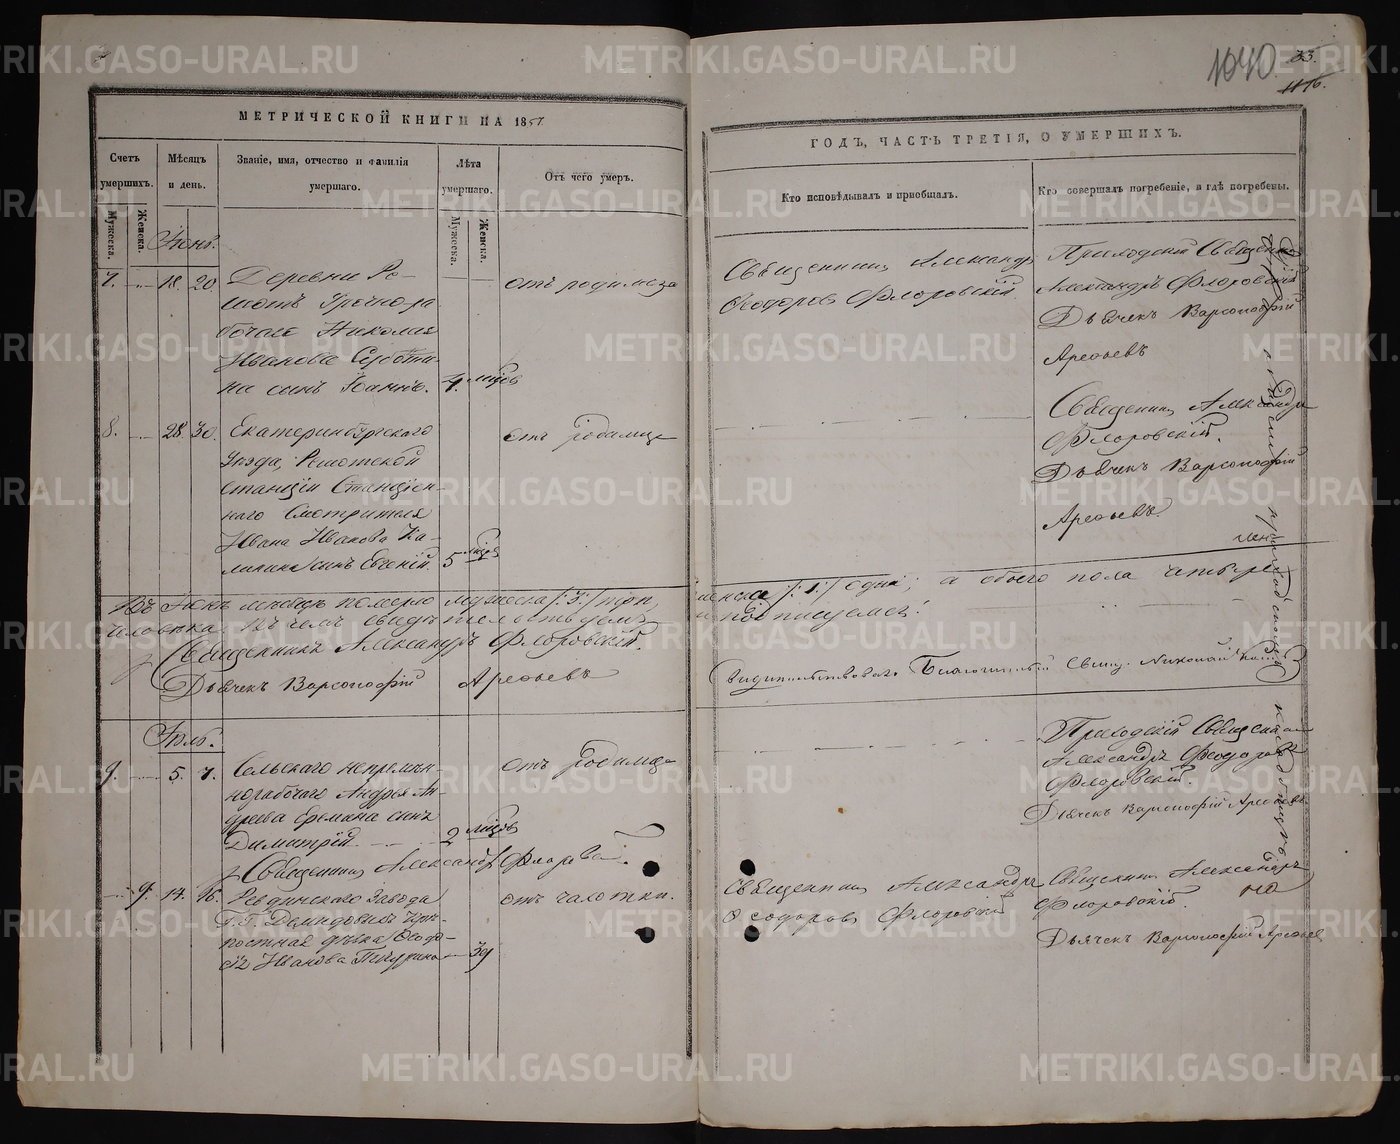 1040
33.
МЕТРИЧЕСКОЙ КНИГИ НА 1857
ГОДЪ, ЧАСТЬ ТРЕТІЯ, О УМЕРШИХЪ.
Счетъ умершихъ.
Мужеска.
Женска.
Мѣсяцъ и день.
Званіе, имя, отчество и фамилія умершаго.
Лѣта умершаго.
Мужеска.
Женска.
Отъ чего умеръ.
Кто исповѣдывалъ и пріобщалъ.
Кто совершалъ погребеніе, и гдѣ погребены.
7. 18. 20.
Деревни Ре-
шотъ Урочнора-
бочаго Николая
Иванова
на сынъ Іоаннъ.
отъ родимца
Священникъ Александръ
Ѳеодоровъ Флоровскій
Приходскій Священникъ
Александръ Флоровскій
Дьячекъ Варсонофій
Арефьевъ
8. 28. 30.
Екатеринбургского
Уѣзда, Решотской
станціи Станціон-
наго Смотрителя
Ивана Иванова Ка-
линина сынъ Евгеній. 5
отъ родимца
Священникъ Александръ
Флоровскій.
Дьячекъ Варсонофій
Арефьевъ.
Въ Іюнѣ мѣсяцѣ померло мужеска /:3:/ три, женска /:1:/ одна; а обоего пола четыре
человѣка, въ чемъ свидѣтельствуемъ и подписуемся:
Священникъ Александръ Флоровскій.
Дьячекъ Варсонофій Арефьевъ
Свидѣтельствовалъ Благочинный Свящ. Николай
Іюль.
9. 5. 7.
Сельского непремѣн-
норабочаго Андрея Ан-
дреева Еремина сынъ
Димитрій 2
отъ родимца
Приходскій Священникъ
Александръ Ѳеодоровъ
Флоровскій.
Дьячекъ Варсонофій Арефьевъ
Священникъ Александръ Флоровскій.
9. 14. 16.
Ревдинского Завода
Г.Г. Демидовыхъ Крѣ-
постная дѣвка
Иванова 39
отъ чахотки.
Священникъ Александръ
Ѳеодоровъ Флоровскій
Священникъ Александръ
Флоровскій.
Дьячекъ Варсонофій Арефьев
METRIKI.GASO-URAL.RU